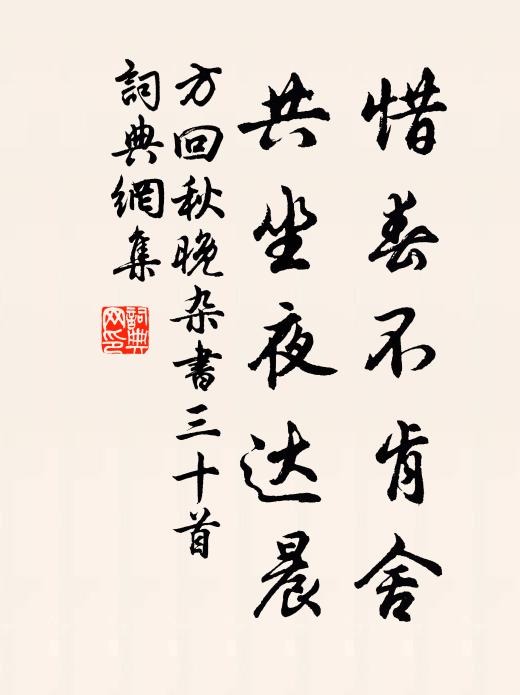 惜春不肯舍
共坐夜达晨
方回秋晚杂书三十首
詞典網集
詞典网印